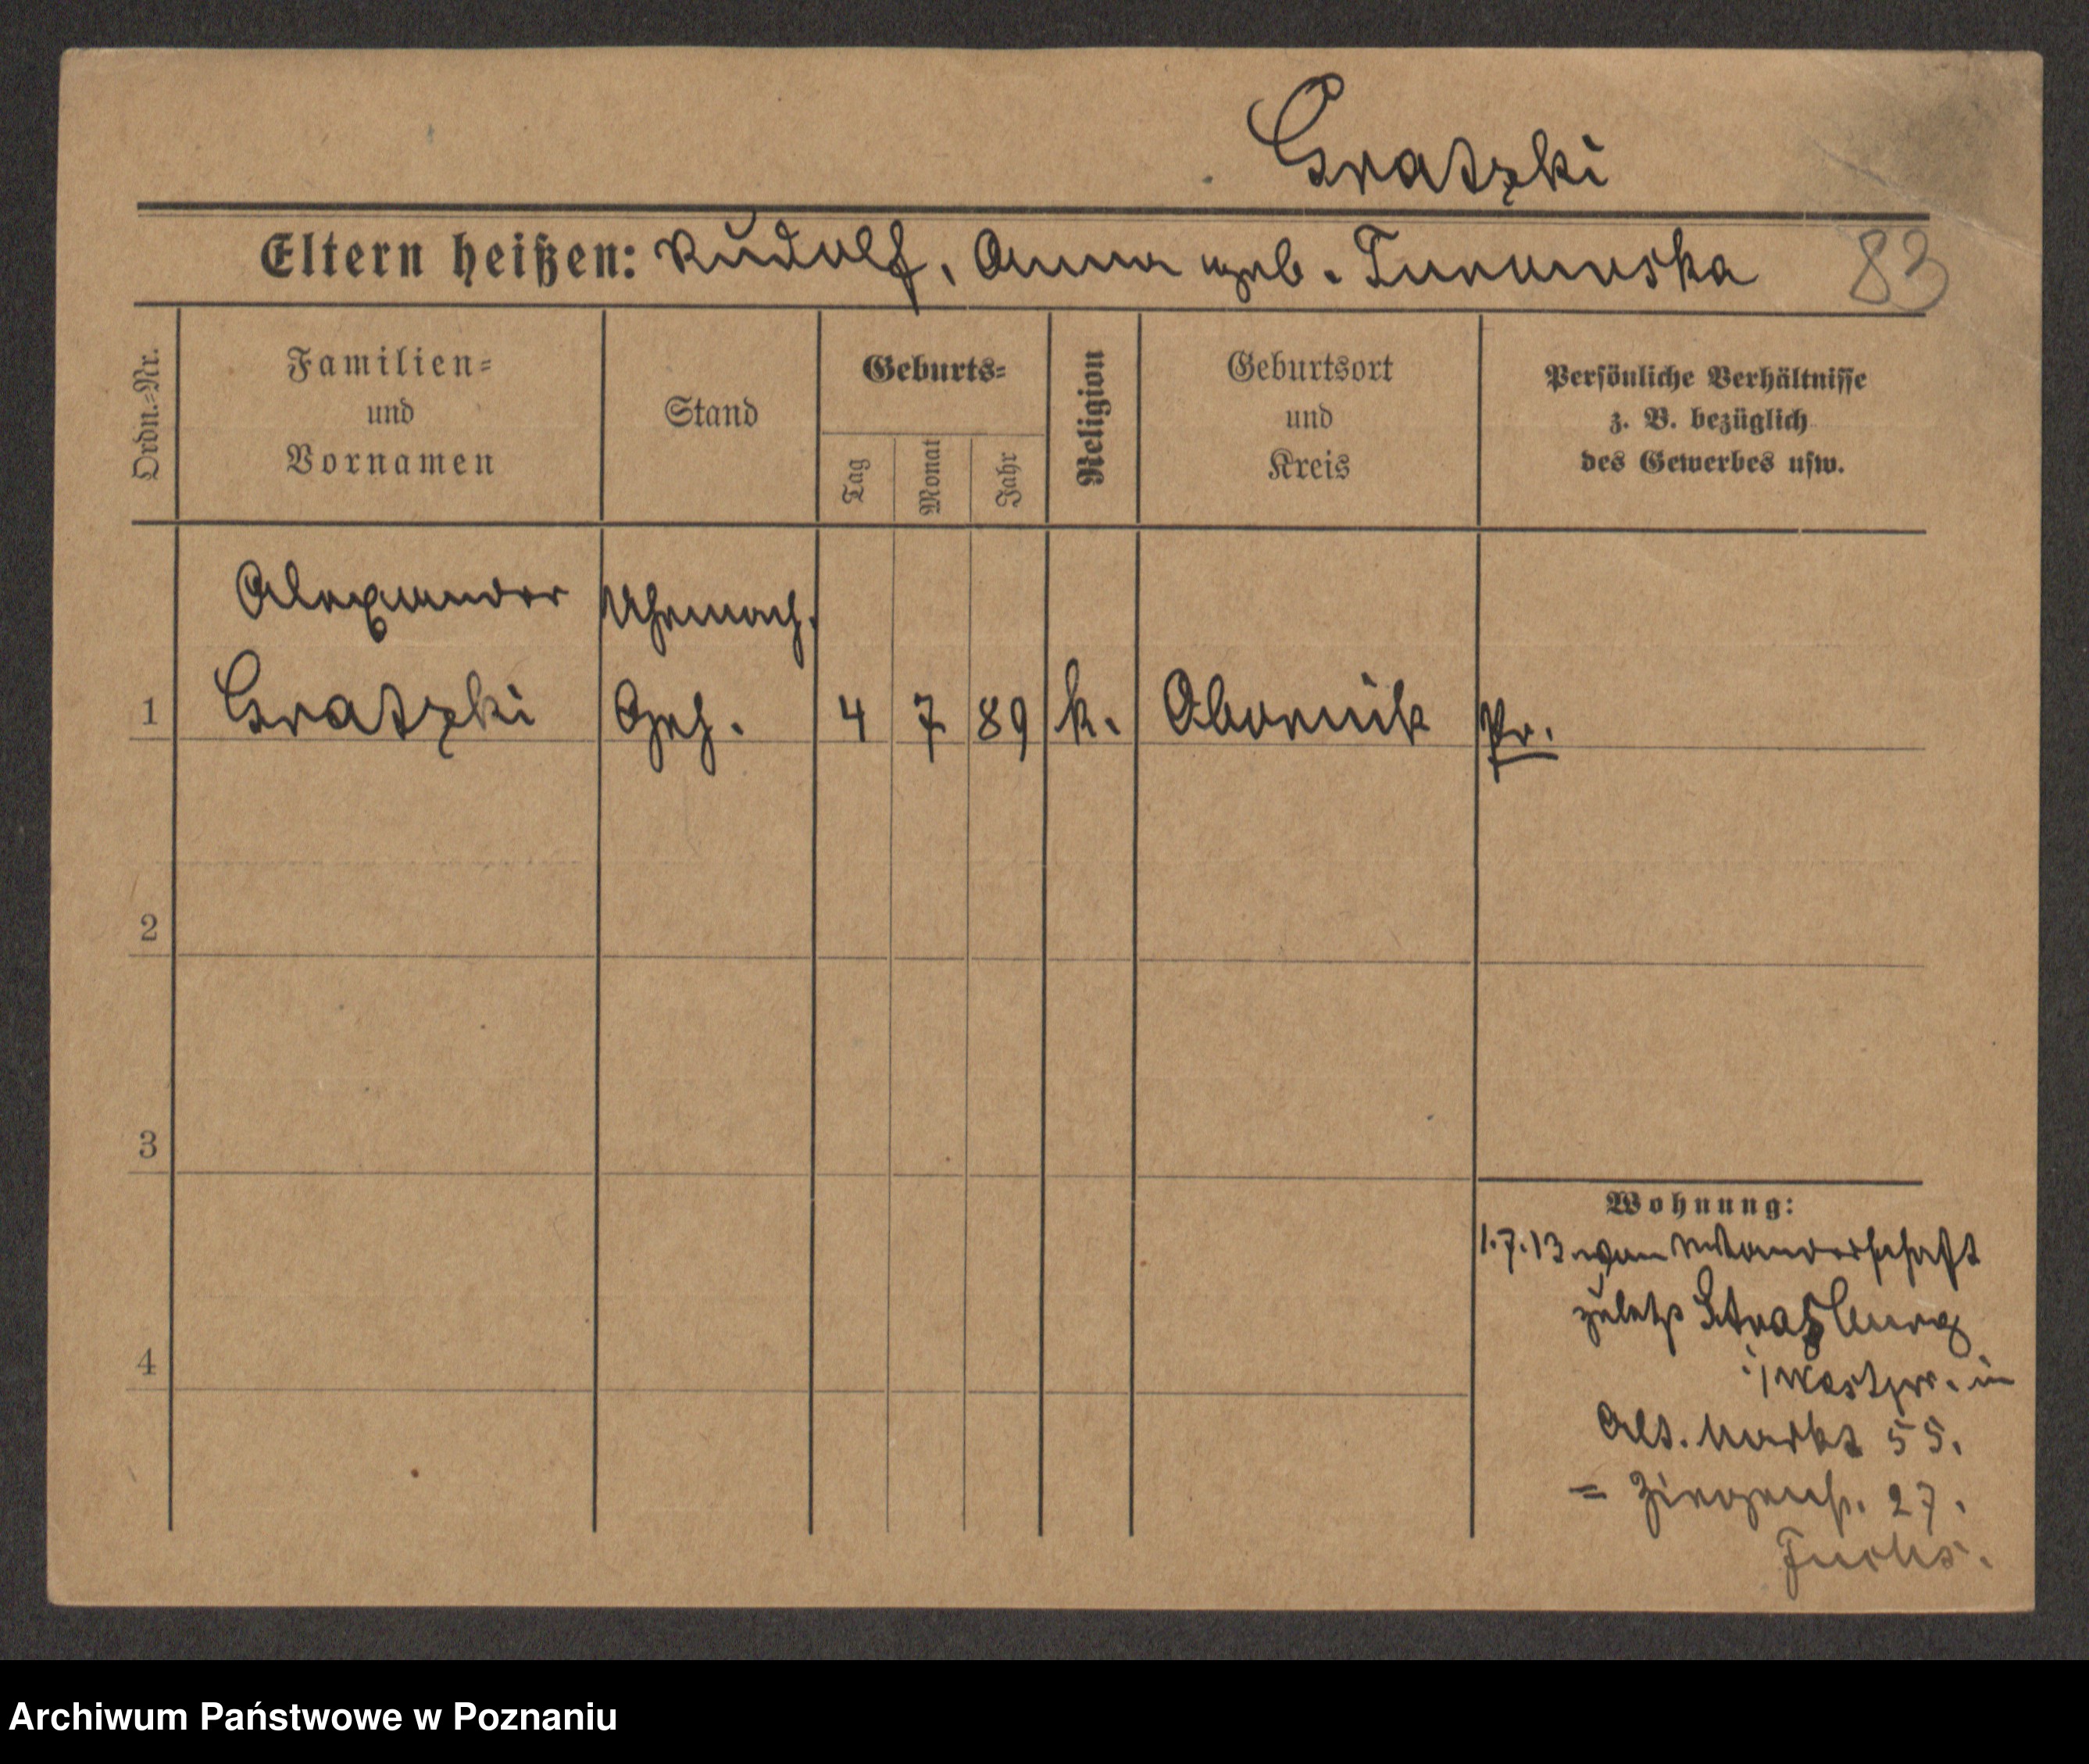 Gratzki
Eltern heißen: Rudolf, Anna geb. Turowska 83
Ordn.=Nr.
Familien=
und
Vornamen
Stand
Geburts=
Tag
Monat
Jahr
Religion
Geburtsort
und
Kreis
Persönliche Verhältnisse
z. B. bezüglich
des Gewerbes usw.
Alexander Uhrmach.
1 Gratzki Geh. 4 7 89 k. Obornik Pr.
2
3
4
Wohnung:
1.7.13 von Wanderschaft
zuletzt Straßburg
i/Westpr. in
Alt. Markt 55.
= Ziegenstr. 27.
Fuchs.
Archiwum Państwowe w Poznaniu